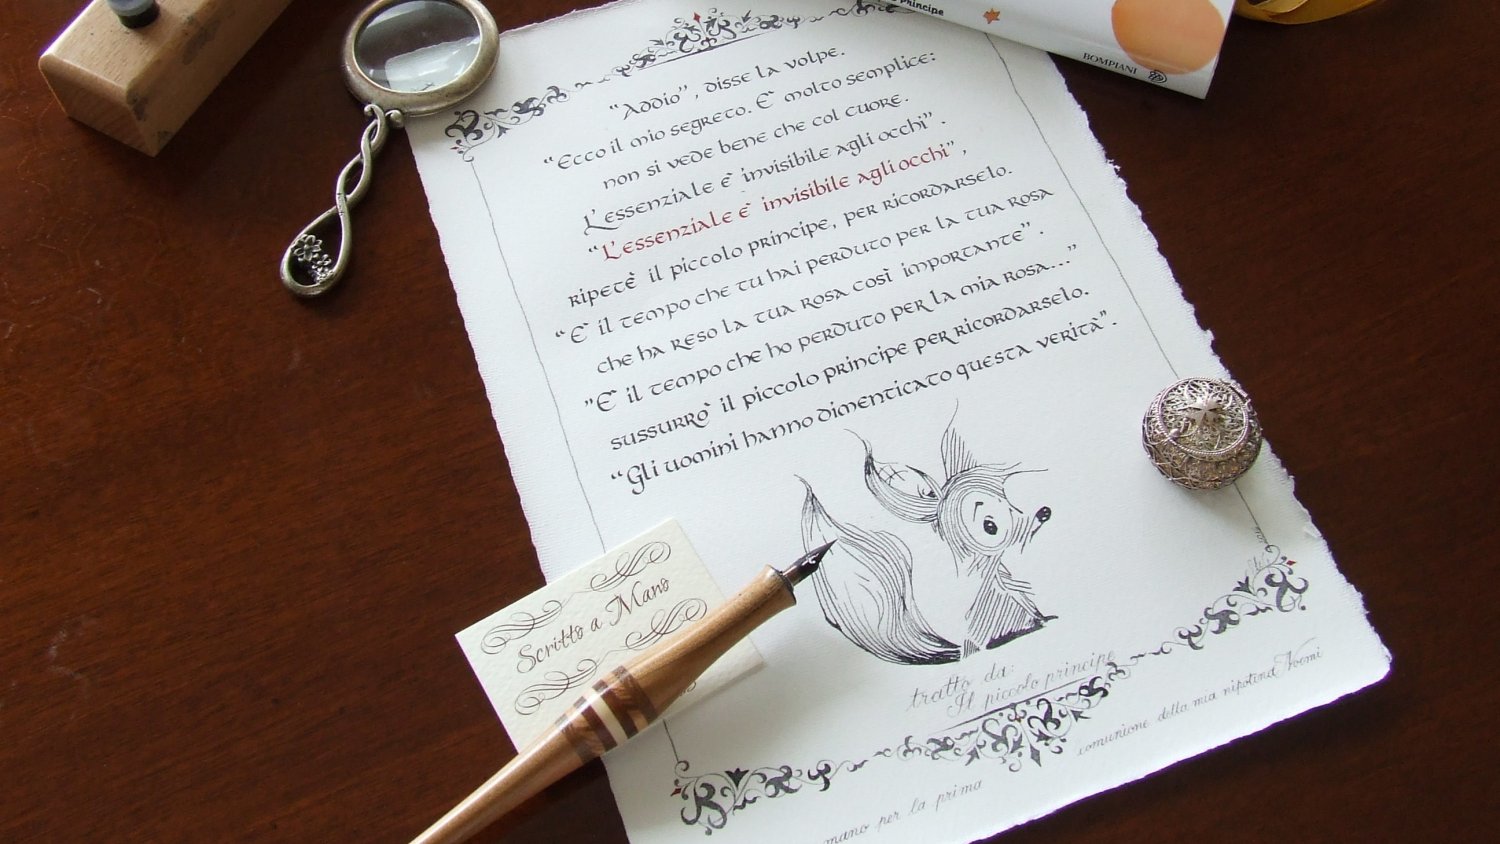 Principe
BOMPIANI
"Addio", disse la volpe.
"Ecco il mio segreto. E' molto semplice:
non si vede bene che col cuore.
L'essenziale e' invisibile agli occhi".
"L'essenziale e' invisibile agli occhi",
ripetè il piccolo principe, per ricordarselo.
"E' il tempo che tu hai perduto per la tua rosa
che ha reso la tua rosa così importante".
"E' il tempo che ho perduto per la mia rosa..."
sussurrò il piccolo principe per ricordarselo.
"Gli uomini hanno dimenticato questa verità".
Scritto a Mano
tratto da:
Il piccolo principe
mano per la prima comunione della mia nipotina Noemi